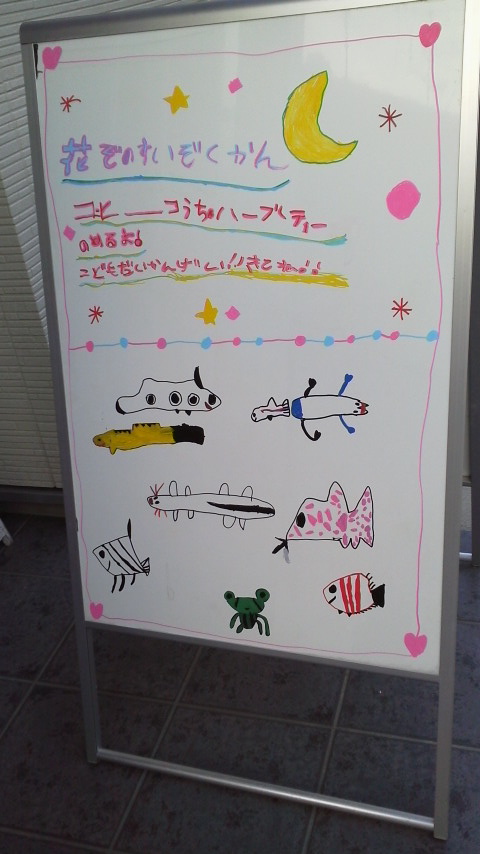 花ぞのすいぞくかん
コーヒーコうちゃハーブティー
のめるよ!
こどもだいかんげい!!きてねっ!!